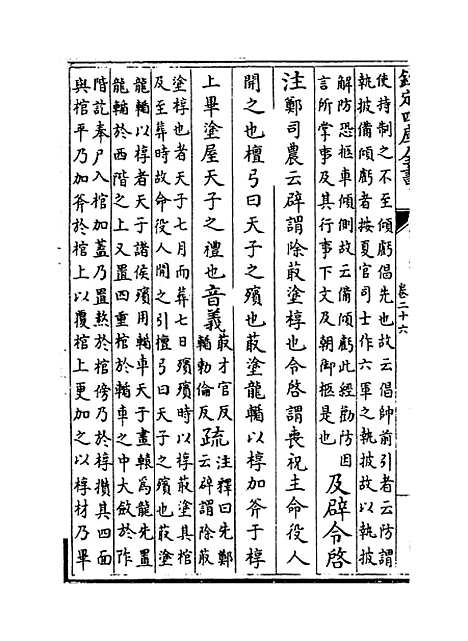 欽定四庫全書
卷二十六
使持制之不至傾虧倡先也故云倡帥前引者云防謂
執披備傾虧者按夏官司士作六軍之執披故以執披
解防恐柩車傾側故云備傾虧此經勸防因
言所掌事及其行事下文及朝御柩是也
及辟令啓
注鄭司農云辟謂除菆塗椁也令啓謂喪祝主命役人
開之也檀弓曰天子之殯也菆塗龍輴以椁加斧于椁
上畢塗屋天子之禮也音義菆才官反輴勅倫反疏注釋曰先鄭云辟謂除菆
塗椁也者天子七月而葬七日殯殯時以椁菆塗其棺
及至葬時故命役人開之引檀弓曰天子之殯也菆塗
龍輴以椁者天子諸侯殯用輴車天子畫轅為龍先置
龍輴於西階之上又置四重棺於輴車之中大斂於阼
階訖奉尸入棺加蓋乃置熬於棺傍乃於椁攢其四面
與棺平乃加斧於棺上以覆棺上更加之以椁材乃畢